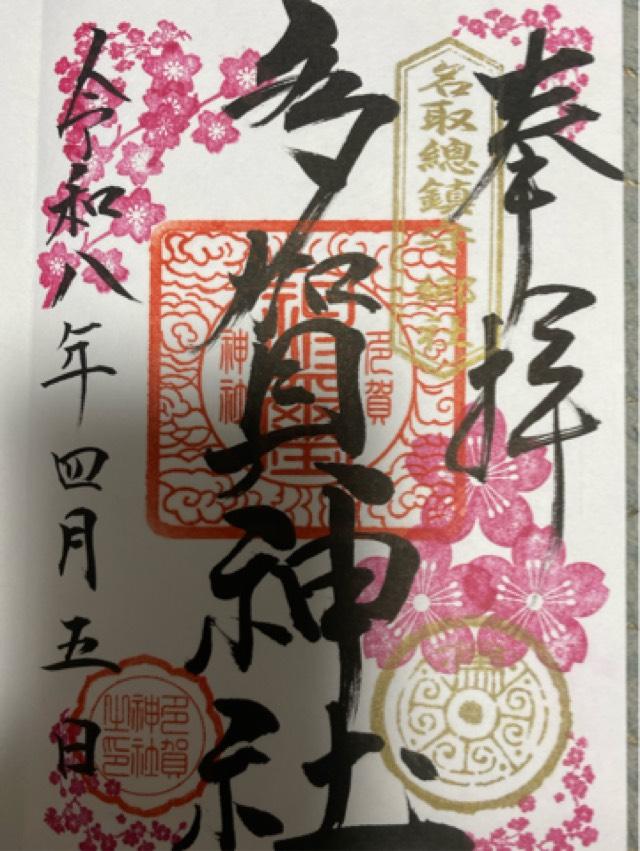 奉拝
名取總鎮守 郷社
多賀神社
多賀
神社
多賀
神社
之印
令和八年四月五日